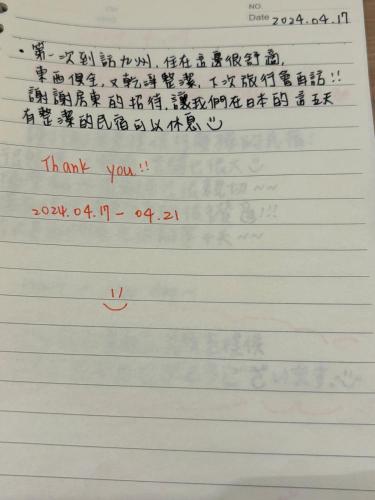 NO.
Date 2024.04.17
• 第一次到訪九州，住在這邊很舒適，
東西俱全，又乾淨整潔，下次旅行會再訪!!
謝謝房東的招待，讓我們在日本的這五天
有整潔的民宿可以休息
Thank you!!
2024.04.17 - 04.21